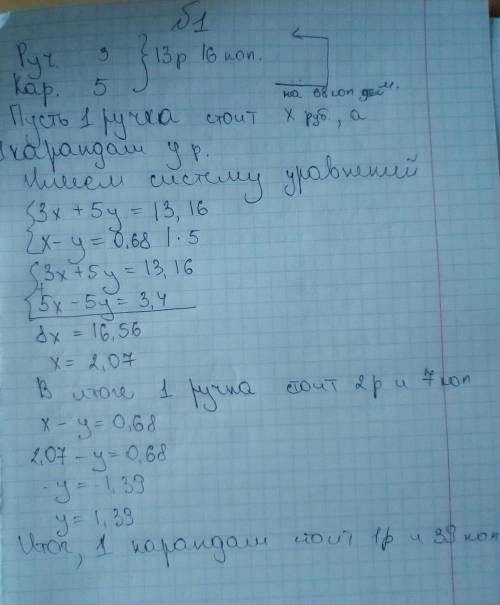 №1
Руч. 3 } 13р 16 коп.
Кар. 5
на 68 коп деш.
Пусть 1 ручка стоит x руб, а
1 карандаш y р.
Имеем систему уравнений
{3x + 5y = 13,16
{x - y = 0,68 | · 5
{3x + 5y = 13,16
{5x - 5y = 3,4
8x = 16,56
x = 2,07
В итоге 1 ручка стоит 2р и 7 коп
x - y = 0,68
2,07 - y = 0,68
-y = -1,39
y = 1,39
Итог, 1 карандаш стоит 1р и 39 коп